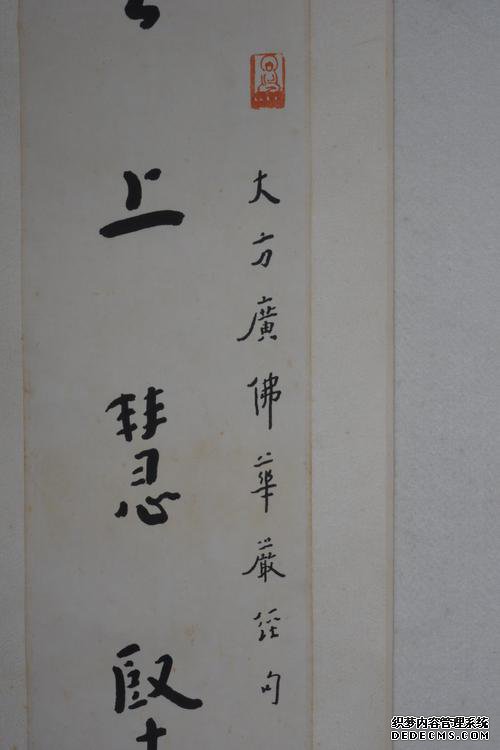 大方廣佛華嚴經句
上慧堅
织梦内容管理系统
DEDECMS.COM